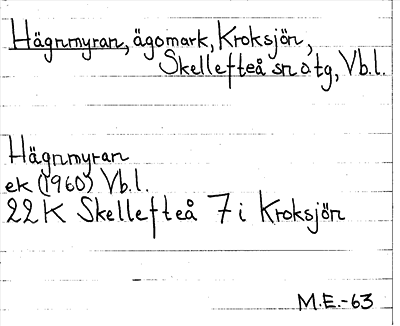 Hägnmyran, ägomark, Kroksjön,
Skellefteå sn o tg, Vb.l.
Hägnmyran
ek (1960) Vb.l.
22K Skellefteå 7i Kroksjön
M.E.-63